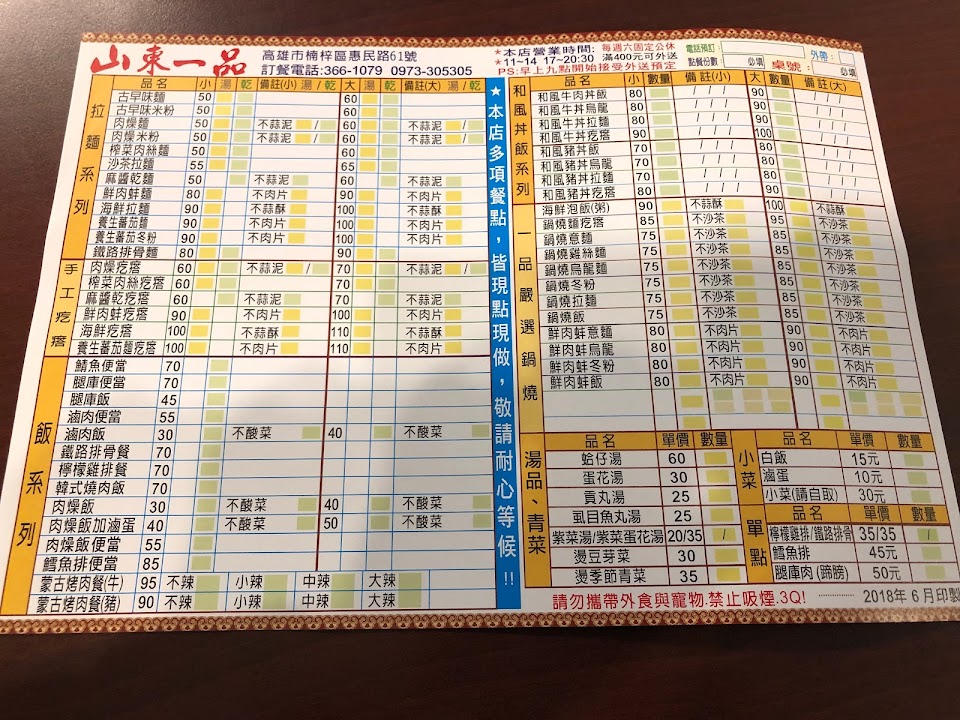 山東一品
高雄市楠梓區惠民路61號
訂餐電話:366-1079 0973-305305
★本店營業時間: 每週六固定公休
★11~14 17~20:30 滿400元可外送
PS:早上九點開始接受外送預定
電話預訂: 外帶:
點餐份數 必填 桌號: 必填
拉麵系列
品名 小 湯 乾 備註(小) 湯/乾 大 湯 乾 備註(大) 湯/乾
古早味麵 50 60
古早味米粉 50 60
肉燥麵 50 不蒜泥 / 60 不蒜泥 /
肉燥米粉 50 不蒜泥 / 60 不蒜泥 /
榨菜肉絲麵 50 60
沙茶拉麵 55 65
麻醬乾麵 50 不蒜泥 60 不蒜泥
鮮肉蚌麵 80 不肉片 90 不肉片
海鮮拉麵 90 不蒜酥 100 不蒜酥
養生蕃茄麵 90 不肉片 100 不肉片
養生蕃茄冬粉 90 不肉片 100 不肉片
鐵路排骨麵 80 90
手工疙瘩
肉燥疙瘩 60 不蒜泥 / 70 不蒜泥 /
榨菜肉絲疙瘩 60 70
麻醬乾疙瘩 60 不蒜泥 70 不蒜泥
鮮肉蚌疙瘩 90 不肉片 100 不肉片
海鮮疙瘩 100 不蒜酥 110 不蒜酥
養生蕃茄麵疙瘩 100 不肉片 110 不肉片
飯系列
鯖魚便當 70
腿庫便當 70
腿庫飯 45
滷肉便當 55
滷肉飯 30 不酸菜 40 不酸菜
鐵路排骨餐 70
檸檬雞排餐 70
韓式燒肉飯 70
肉燥飯 30 不酸菜 40 不酸菜
肉燥飯加滷蛋 40 不酸菜 50 不酸菜
肉燥飯便當 55
鱈魚排便當 85
蒙古烤肉餐(牛) 95 不辣 小辣 中辣 大辣
蒙古烤肉餐(豬) 90 不辣 小辣 中辣 大辣
★本店多項餐點,皆現點現做,敬請耐心等候!!
和風丼飯系列
品名 小 數量 備註(小) 大 數量 備註(大)
和風牛肉丼飯 80 / / / 90 / / /
和風牛丼烏龍 80 / / / 90 / / /
和風牛丼拉麵 80 / / / 90 / / /
和風牛丼疙瘩 90 / / / 100 / / /
和風豬丼飯 70 / / / 80 / / /
和風豬丼烏龍 70 / / / 80 / / /
和風豬丼拉麵 70 / / / 80 / / /
和風豬丼疙瘩 80 / / / 90 / / /
一品嚴選鍋燒
海鮮泡飯(粥) 90 不蒜酥 100 不蒜酥
鍋燒麵疙瘩 85 不沙茶 95 不沙茶
鍋燒意麵 75 不沙茶 85 不沙茶
鍋燒雞絲麵 75 不沙茶 85 不沙茶
鍋燒烏龍麵 75 不沙茶 85 不沙茶
鍋燒冬粉 75 不沙茶 85 不沙茶
鍋燒拉麵 75 不沙茶 85 不沙茶
鍋燒飯 75 不沙茶 85 不沙茶
鮮肉蚌意麵 80 不肉片 90 不肉片
鮮肉蚌烏龍 80 不肉片 90 不肉片
鮮肉蚌冬粉 80 不肉片 90 不肉片
鮮肉蚌飯 80 不肉片 90 不肉片
湯品、青菜
品名 單價 數量
蛤仔湯 60
蛋花湯 30
貢丸湯 25
虱目魚丸湯 25
紫菜湯/紫菜蛋花湯 20/35 /
燙豆芽菜 30
燙季節青菜 35
小菜
品名 單價 數量
白飯 15元
滷蛋 10元
小菜(請自取) 30元
單點
品名 單價 數量
檸檬雞排/鐵路排骨 35/35 /
鱈魚排 45元
腿庫肉(蹄膀) 50元
請勿攜帶外食與寵物.禁止吸煙.3Q! 2018年6月印製